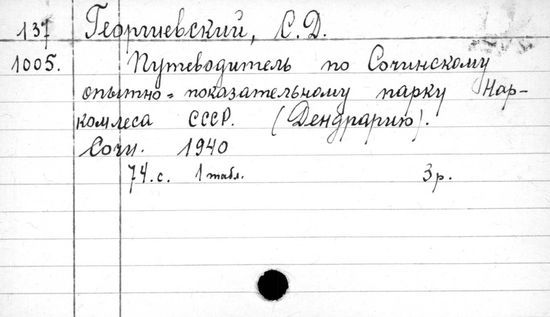 137 Георгиевский, С.Д.
1005. Путеводитель по Сочинскому
опытно-показательному парку Нар-
комлеса СССР. (Дендрарию).
Сочи. 1940
74.с. 1 табл. 3 р.